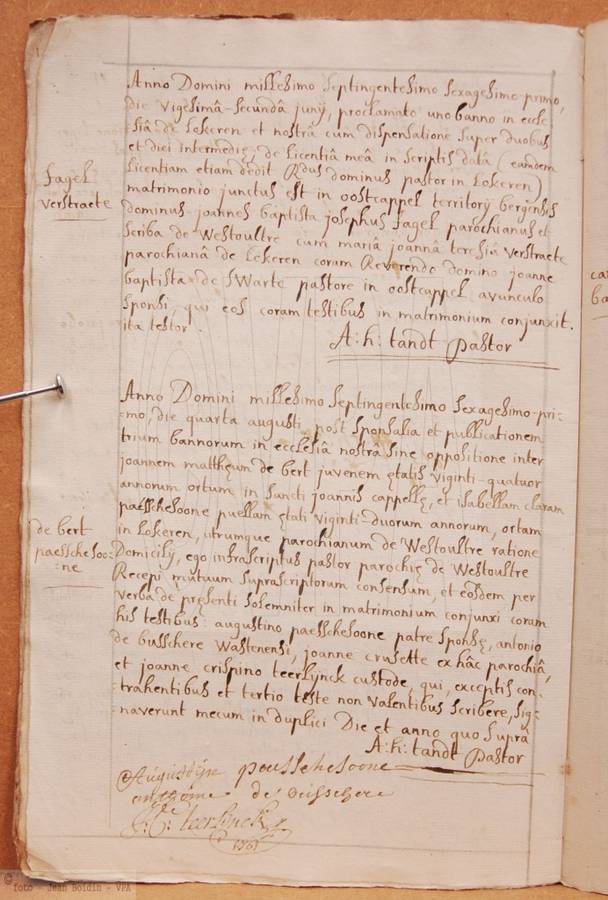 Anno Domini millesimo septingentesimo sexagesimo-primo,
die vigesimâ-secundâ junij, proclamato uno banno in eccle-
siâ de Lokeren et nostrâ cum dispensatione super duobus
et diei intermedię, de licentiâ meâ in scriptis datâ (eamdem
licentiam etiam dedit Rdus dominus pastor in Lokeren)
fagel
verstraete
matrimonio junctus est in oostcappel territorij bergensis
dominus joannes baptista josephus fagel parochianus et
scriba de Westoultre cum mariâ joannâ teresiâ verstraete
parochianâ de Lokeren coram Reverendo domino joanne
baptista de SWarte pastore in oostcappel avunculo
sponsi, qui eos coram testibus in matrimonium conjunxit.
ita testor
A: h: tandt pastor
Anno Domini millesimo septingentesimo sexagesimo-pri-
=mo, die quarta augusti post sponsalia et publicationem
trium bannorum in ecclesiâ nostrâ sine oppositione inter
joannem matthęum de bert juvenem ętatis viginti-quatuor
annorum ortum in sancti joannis cappellę, et isabellam claram
paesschesoone puellam ętati viginti-duorum annorum, ortam
in Lokeren, utrumque parochianum de Westoultre ratione
de bert
paesschesoo=
=ne
Domicilij, ego infrascriptus pastor parochię de Westoultre
Recepi mutuum suprascriptorum consensum, et eosdem per
verba de pręsenti solemniter in matrimonium conjunxi coram
his testibus: augustino paesschesoone patre sponsę, antonio
de busschere Wastenensi, joanne crusette ex hâc parochiâ,
et joanne crispino teerlijnck custode, qui, exceptis con-
trahentibus et tertio teste non valentibus scribere, sig=
naverunt mecum in duplici Die et anno quo suprà
A: h: tandt pastor
Augustijn passchesoone
de
teerlynck
1761
© foto - Jean Boidin - VPA